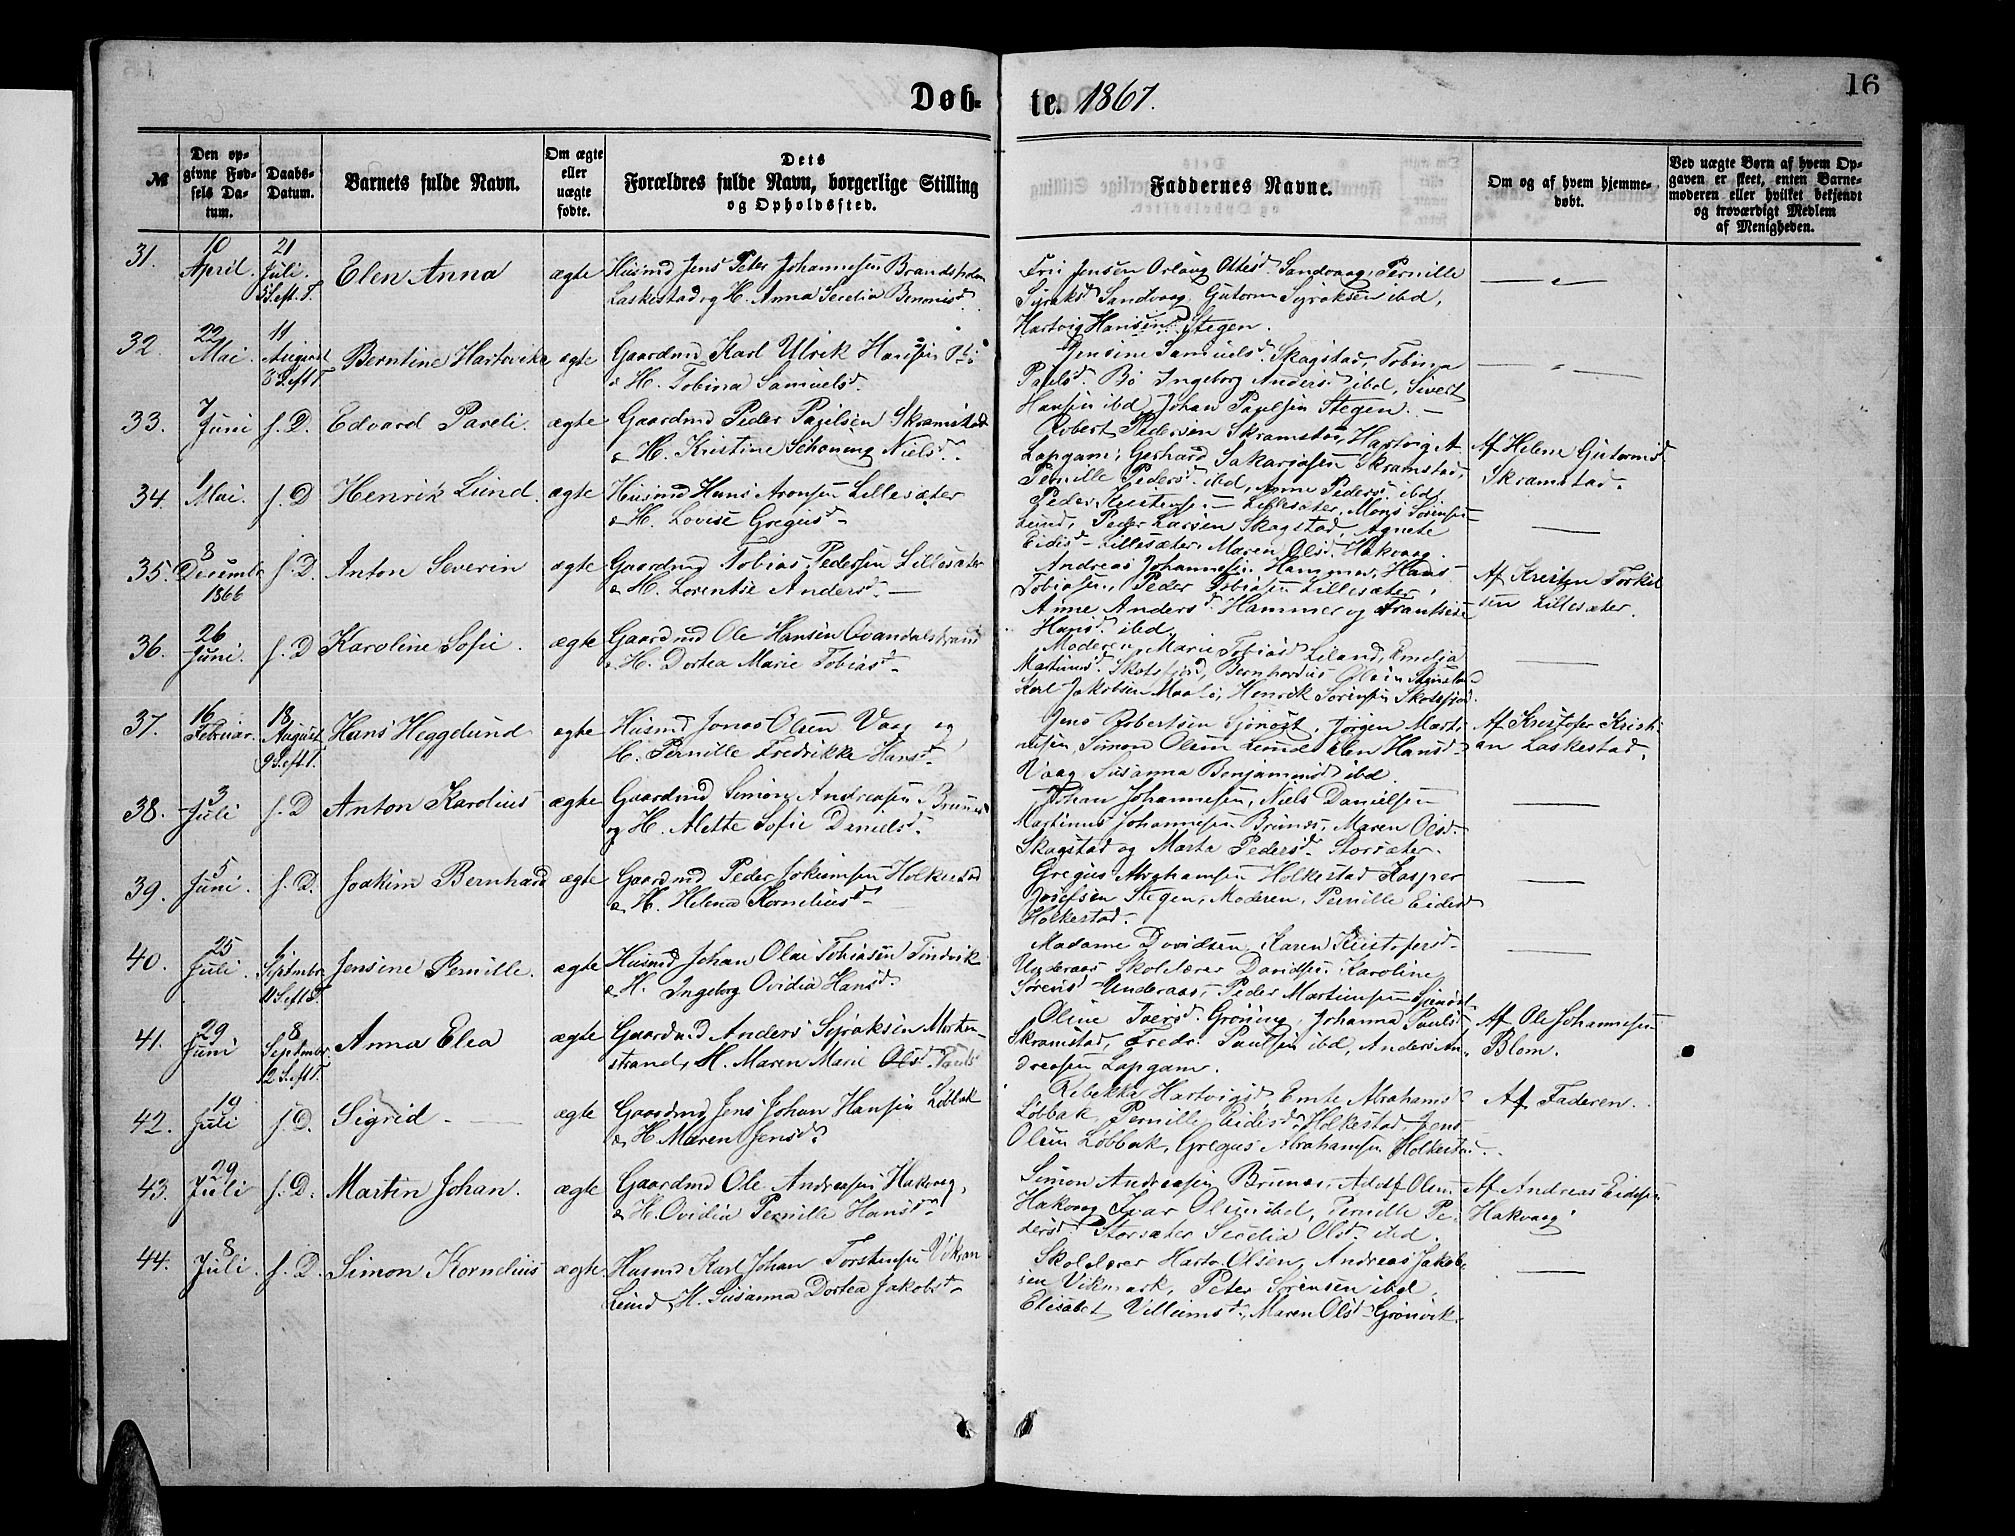 16
Døb-te. 1867.
№
Den opgivne Fødsels Datum.
Daabs-Datum.
Barnets fulde Navn.
Om ægte eller uægte fødte.
Dets Forældres fulde Navn, borgerlige Stilling og Opholdssted.
Faddernes Navne.
Om og af hvem hjemmedøbt.
Ved uægte Børn af hvem Opgaven er skeet, enten Barnemoderen eller hvilket bekjendt og troværdigt Medlem af Menigheden.
31. 10 April. 21 Juli. 5 S. eft. T. Elen Anna ægte
Husmd Jens Peter Johannesen
Laskestad og H. Anna Serelia
Jensen Orlaug Ottesd. Sandvaag, Pernille
Syraksd Sandvaag, Gutorm Syraksen ibd,
Hartvig Hansen Stegen.
32. 22 Mai. 11 August 8 S eft T Berntine Hartvika ægte
Gaardmd Karl Ulrik Hansen Bø
& H. Tobina Samuelsd.
Jensine Samuelsd. Skagstad, Tobina
Paulsd. Bø Ingeborg Andersd. ibd, Sivert
Hansen ibd, Johan Paulsen Stegen. —
33. 7 Juni f. D. Edvard Pareli. ægte
Gaardmd Peder Paulsen Skramstad
& H. Kristine Schøning Nielsd.
Robert Pedersen Skramstad, Hartvig A.
Lapgam, Gerhard Sakariasen Skramstad,
Pernille Pedersd. ibd, Anne Pedersd. ibd.
Af Helene Gutormsd.
Skramstad.
34. 1 Mai. f. D Henrik Lund. ægte
Husmd Hans Aronsen Lillesæter
& H. Lovise Gregusd.
Peder Kristens. — Lillesæter, Mons Sørensen
Lund, Peder Larsen Skagstad, Agnete
Eidisd — Lillesæter, Maren Olsd. Hakvaag.
35. 8 Decembr 1866 f. D. Anton Severin ægte
Gaardmd Tobias Pedersen Lillesæter
& H. Lorentse Andersd. —
Andreas Johannesen Hammer, Hans
Tobiasen, Peder Tobiasen Lillesæter,
Anne Andersd. Hammer og Frantsise
Hansd. ibd.
Af Kristen Torkil
sen Lillesæter.
36. 26 Juni. f. D Karoline Sofie. ægte
Gaardmd Ole Hansen
& H. Dortea Marie Tobiasd.
Moderen, Marie Tobiasd Leland, Emelja
Martinusd. Skotsfjord, Bernhardus Olsen
Karl Jakobsen Maalø, Henrik Sørensen Skotsfjord
37. 16 Februar. 18 August 9 S. eft T. Hans Heggelund ægte
Husmd Jonas Olsen Vaag og
H. Pernille Fredrikke Hansd.
Jens Robertsen, Jørgen Marti
nusen, Simon Olsen Lund Elen Hansd
Vaag Susanna Benjaminsd ibd.
Af Kristofer Kristi
an Laskestad.
38. 3 Juli f. D Anton Karolius ægte
Gaardmd Simon Andreasen Brunes
og H. Alette Sofie Danielsd.
Johan Johannesen, Niels Danielsen
Martinus Johannesen Brunes, Maren Olsd.
Skagstad og Marta Pedersd. Storsæter.
39. 5 Juni. f. D. Joakim Bernhard ægte
Gaardmd Peder Jokumsen Holkestad
& H. Helena Korneliusd
Gregus Abrahamsen Holkestad Kasper
Josefsen Stegen, Moderen, Pernille Eidisd
Holkestad.
40. 25 Juli. 1 Septmbr. 11 S eft T Jensine Pernille. ægte
Husmd Johan Olai Tobiasen Tindvik
& H. Ingeborg Ovidia Hansd.
Madame Davidsen, Karen Kristofersd.
Underaas Skolelærer Davidsen, Karoline
Sørensd Underaas, Peder Martinusen
41. 29 Juni 8 Septmbr. 12 S. eft T. Anna Elea ægte
Gaardmd Anders Syraksen Morten
strand, H. Maren Marie Olsd. Paulsd
Oline Grøning, Johanna Paulsd
Skramstad, Fredr. Paulsen ibd, Anders An
dreasen Lapgam.
Af Ole Johannesen
Blom.
42. 19 Juli f. D. Sigrid ægte
Gaardmd Jens Johan Hansen Løbbak
& H. Maren Jensd.
Rebekka Hartvigsd, Emte Abrahamsd
Løbbak, Pernille Eidisd. Holkestad, Jens
Olsen Løbbak, Gregus Abrahamsen Holkestad.
Af Faderen.
43. 29 Juli f. D. Martin Johan. ægte
Gaardmd Ole Andreasen Hakvaag,
& H. Ovidia Pernille Hansd.
Simon Andreasen Brunes, Adolf Olsen
Hakvaag Ivar Olsen ibd, Pernille Pe-
dersd Storsæter Secelia Olsd. ibd.
Af Andreas Eidisen
Hakvaag.
44. 8 Juli. f. D. Simon Kornelius ægte
Husmd Karl Johan Torstensen
Lund, H. Susanna Dortea Jakobsd.
Skolelærer Hartv. Olsen, Andreas Jakob
sen Vikmark, Peter Sørensen ibd,
Elisabet Villumsd., Maren Olsd Grønvik.